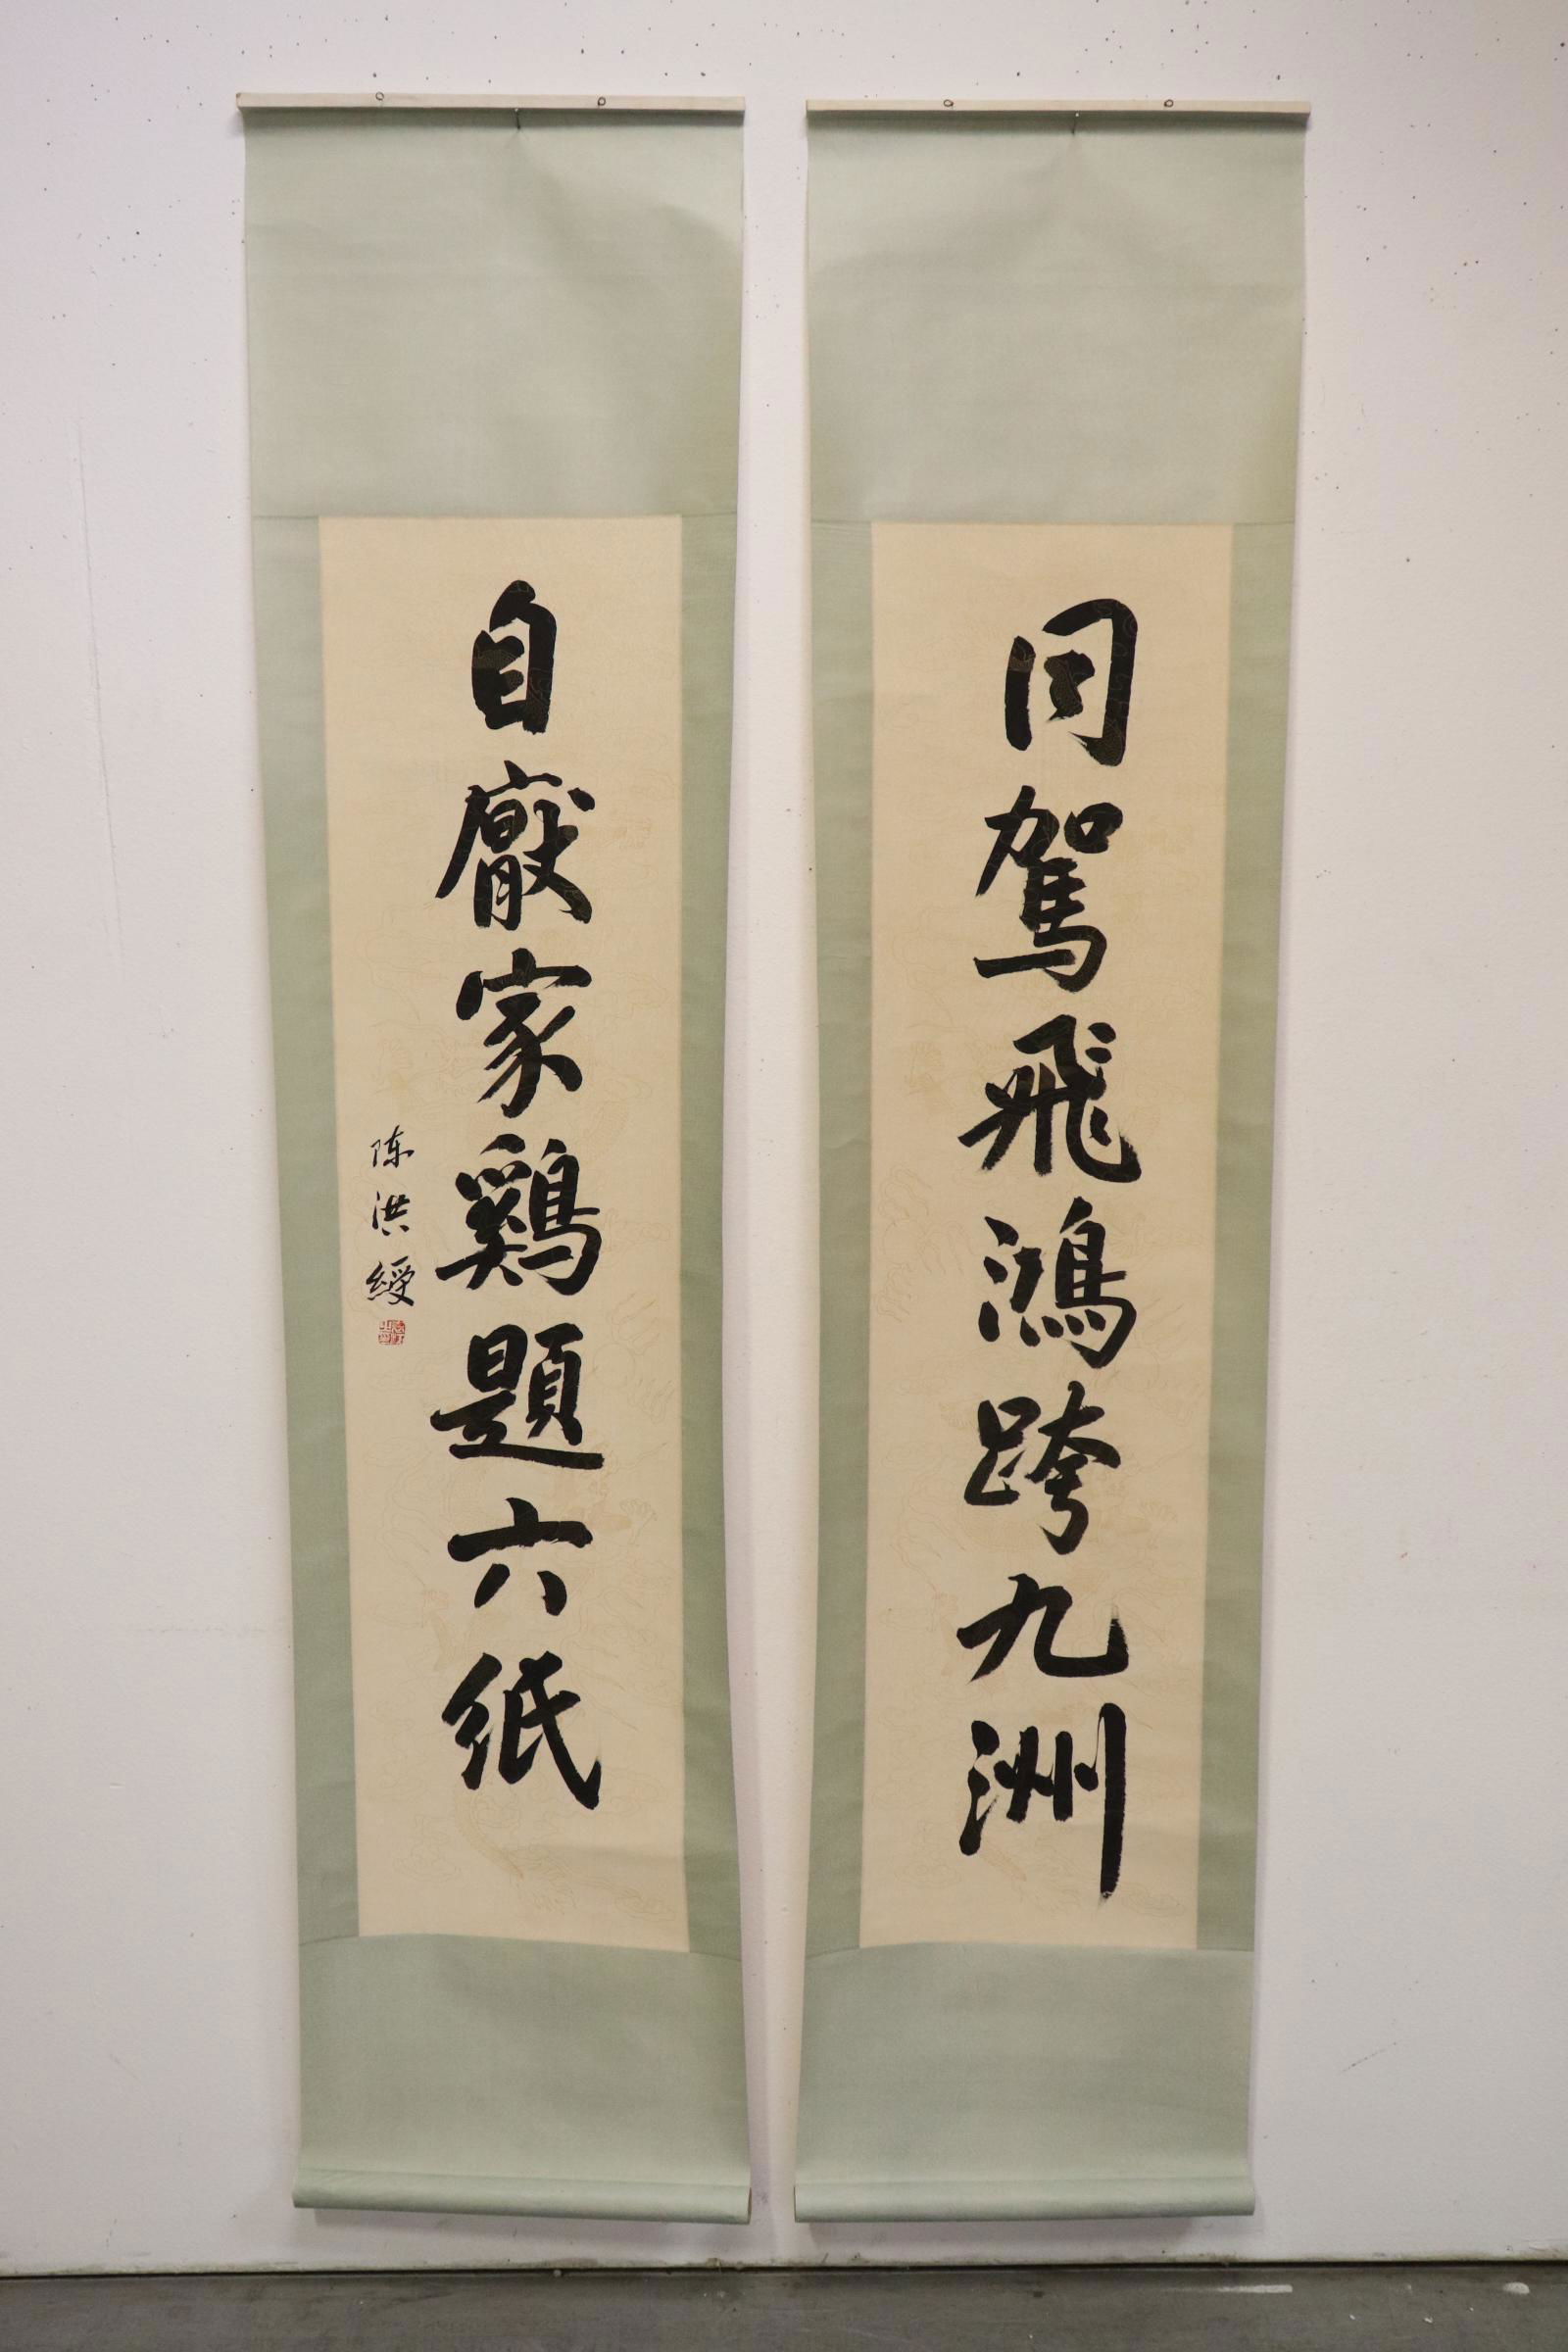 同駕飛鴻跨九洲
自厭家鷄題六紙
陈洪綬